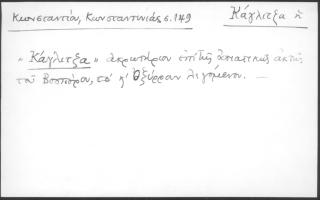 Κωνσταντίου, Κωνσταντινιάς σ. 149
Κάγλιτζα ἡ
"Κάγλιτζα" ἀκρωτήριον ἐπὶ τῆς ἀσιατικῆς ἀκτῆς
τοῦ Βοσπόρου, τὸ κ' Ὀξύρραν λεγόμενον. —